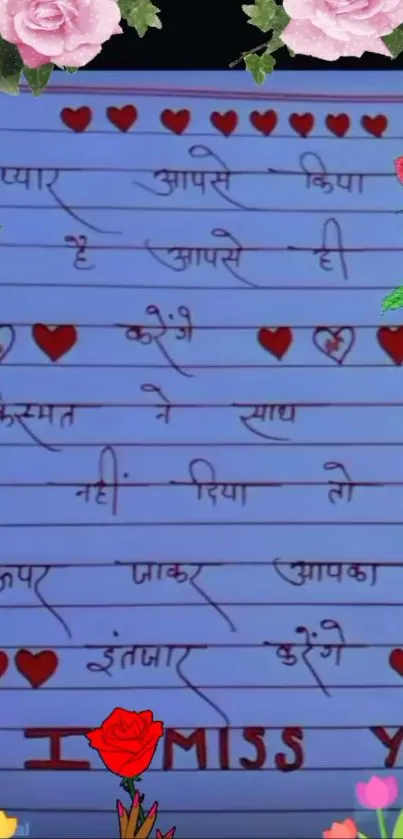 प्यार आपसे किया
है आपसे ही
करेंगे
किस्मत ने साथ
नहीं दिया तो
ऊपर जाकर आपका
इंतजार करेंगे
I MISS Y
al